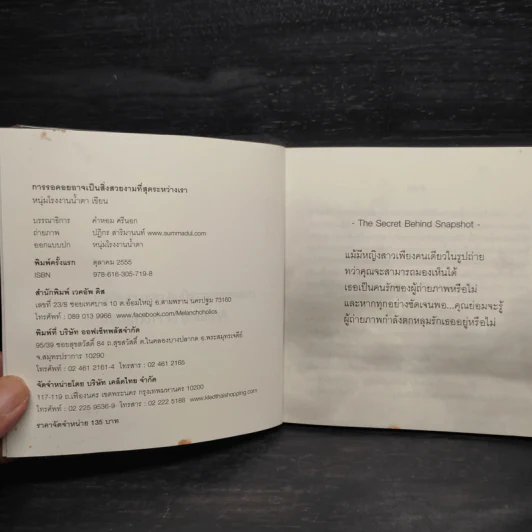 การรอคอยอาจเป็นสิ่งสวยงามที่สุดระหว่างเรา
หนุ่มโรงงานน้ำตา เขียน
บรรณาธิการ คำหอม ศรีนอก
ถ่ายภาพ ปฏิกร สาริมานนท์ www.summadul.com
ออกแบบปก หนุ่มโรงงานน้ำตา
พิมพ์ครั้งแรก ตุลาคม 2555
ISBN 978-616-305-719-8
สำนักพิมพ์ เวคอัพ คิส
เลขที่ 23/8 ซอยเทศบาล 10 ต.อ้อมใหญ่ อ.สามพราน นครปฐม 73160
โทรศัพท์ : 089 013 9966 www.facebook.com/Melancholics
พิมพ์ที่ บริษัท ออฟเซ็ทพลัสจำกัด
95/39 ซอยสุขสวัสดิ์ 84 ถ.สุขสวัสดิ์ ต.ในคลองบางปลากด อ.พระสมุทรเจดีย์
จ.สมุทรปราการ 10290
โทรศัพท์ : 02 461 2161-4 โทรสาร : 02 461 2165
จัดจำหน่ายโดย บริษัท เคล็ดไทย จำกัด
117-119 ถ.เฟื่องนคร เขตพระนคร กรุงเทพมหานคร 10200
โทรศัพท์ : 02 225 9536-9 โทรสาร : 02 222 5188 www.kledthaishopping.com
ราคาจัดจำหน่าย 135 บาท
- The Secret Behind Snapshot -
แม้มีหญิงสาวเพียงคนเดียวในรูปถ่าย
ทว่าคุณจะสามารถมองเห็นได้
เธอเป็นคนรักของผู้ถ่ายภาพหรือไม่
และหากทุกอย่างชัดเจนพอ...คุณย่อมจะรู้
ผู้ถ่ายภาพกำลังตกหลุมรักเธออยู่หรือไม่